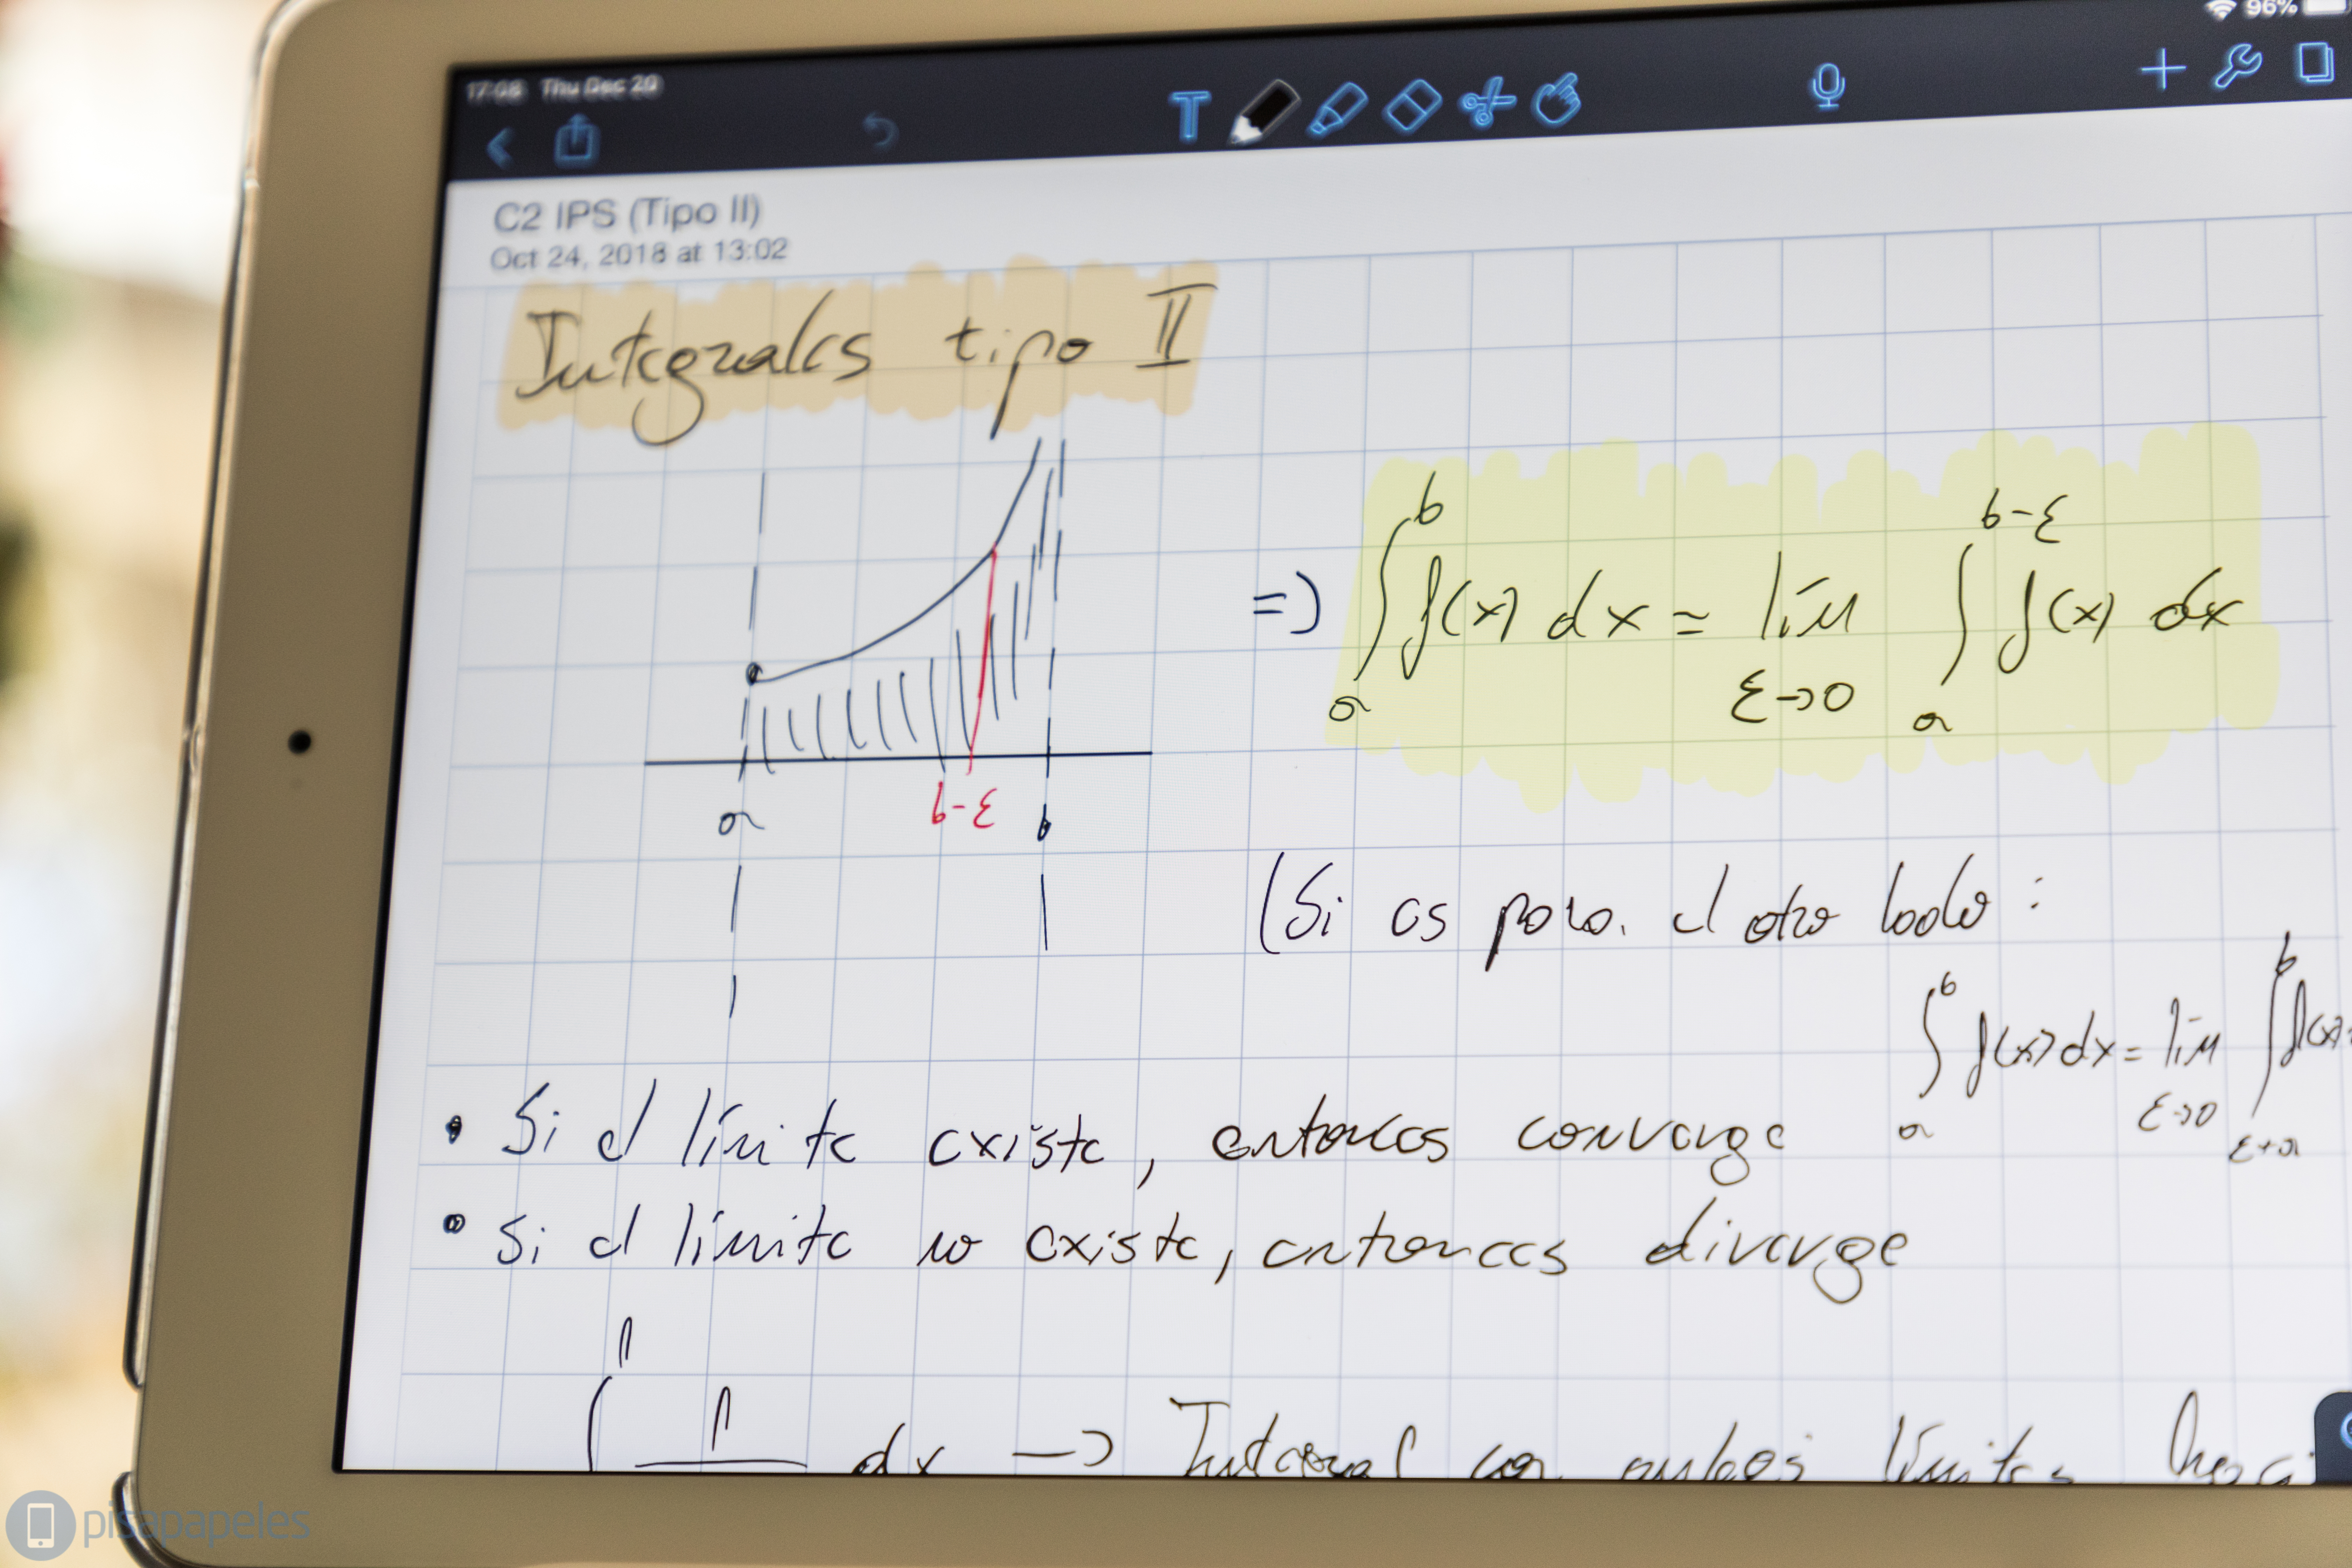 17:08 Thu Dec 20
96%
T
C2 IPS (Tipo II)
Oct 24, 2018 at 13:02
Integrales tipo II
a b-ε b
=) ∫_a^b f(x) dx = lím_{ε→0} ∫_a^{b-ε} f(x) dx
(Si es para el otro lado:
∫_a^b f(x) dx = lím_{ε→0} ∫_{ε+a}^b f(x)
• Si el límite existe, entonces converge
• Si el límite no existe, entonces diverge
∫^1 1 dx → Integral con ambos límites
pisapapeles